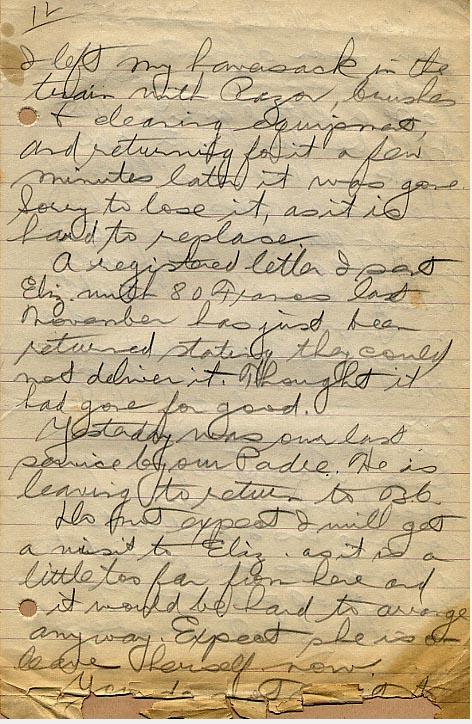 12
I left my haversack in the
train with Razor, brushes
+ cleaning equipment,
and returning for it a few
minutes later it was gone
Sorry to lose it, as it is
hard to replace.
A registered letter I sent
Eliz. with 80 Francs last
November has just been
returned stating they could
not deliver it. Thought it
had gone for good.
Yesterday was our last
service by our Padre. He is
leaving to return to B.C.
Do not expect I will get
a visit to Eliz. as it is a
little too far from here and
it would be hard to arrange
anyway. Expect she is on
leave herself now.